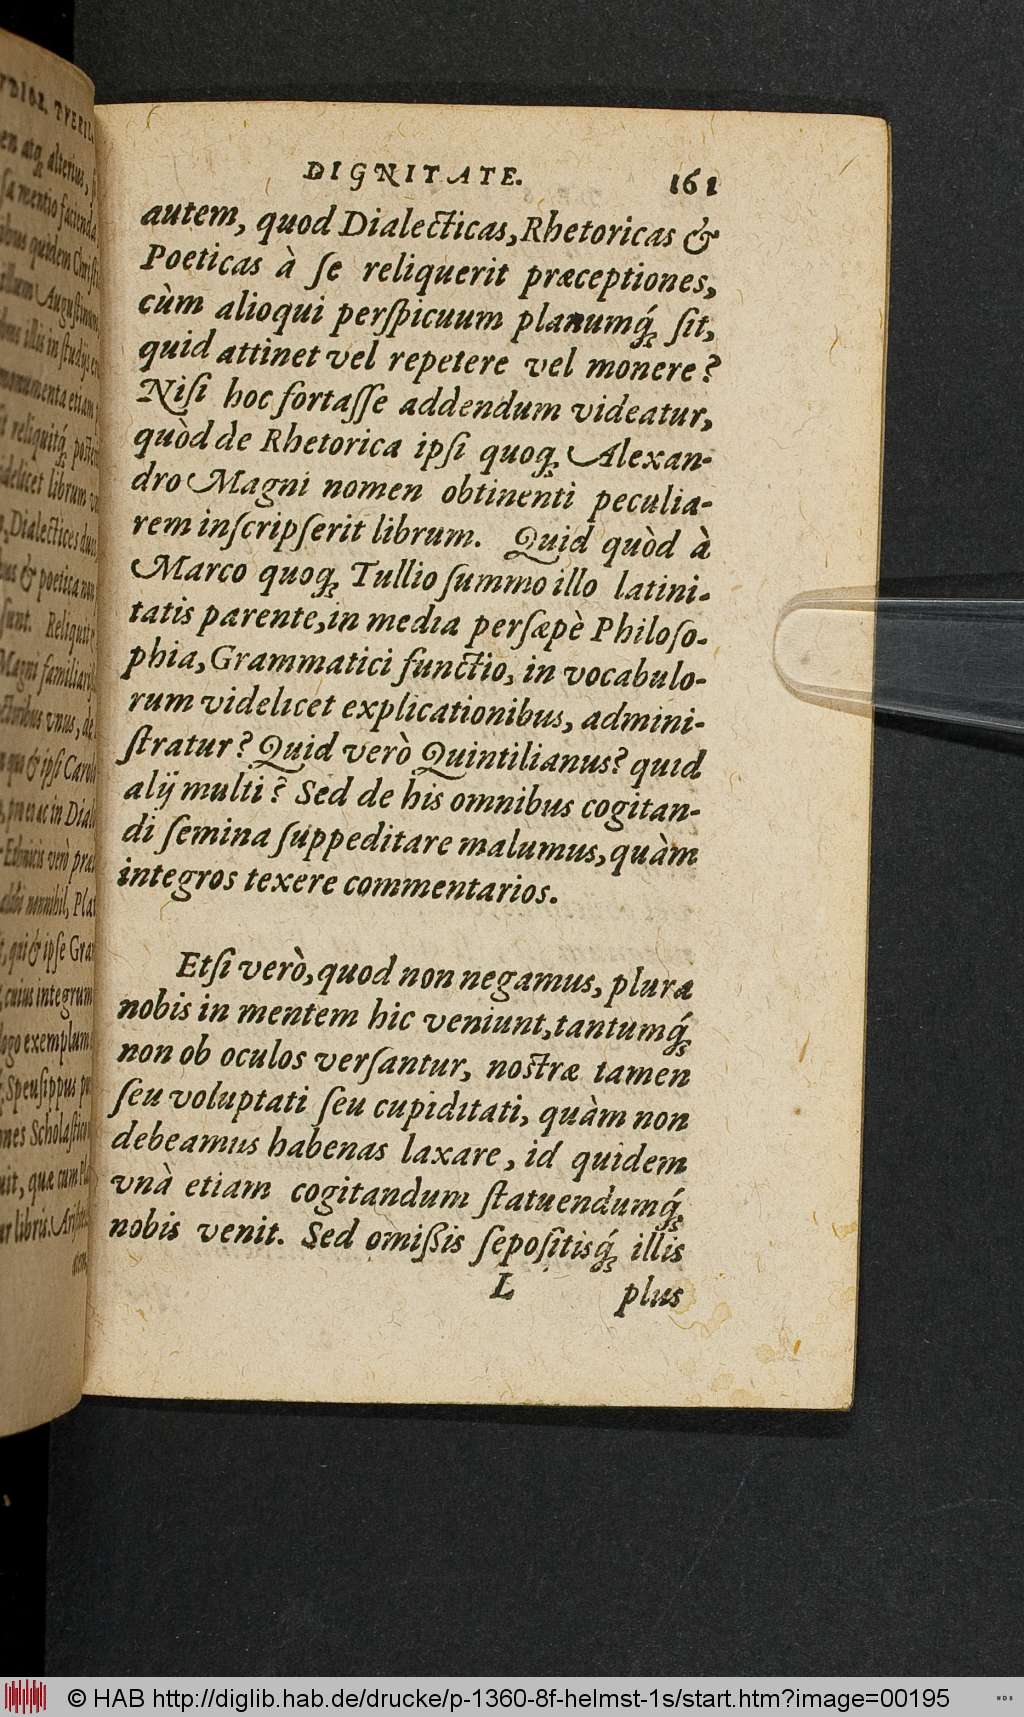 DIGNITATE. 161
autem, quod Dialecticas, Rhetoricas &
Poeticas à se reliquerit præceptiones,
cùm alioqui perspicuum planumq́; sit,
quid attinet vel repetere vel monere?
Nisi hoc fortasse addendum videatur,
quòd de Rhetorica ipsi quoq; Alexan-
dro Magni nomen obtinenti peculia-
rem inscripserit librum. Quid quòd à
Marco quoq; Tullio summo illo latini-
tatis parente, in media persæpè Philoso-
phia, Grammatici functio, in vocabulo-
rum videlicet explicationibus, admini-
stratur? Quid verò Quintilianus? quid
alij multi? Sed de his omnibus cogitan-
di semina suppeditare malumus, quàm
integros texere commentarios.
Etsi verò, quod non negamus, plura
nobis in mentem hic veniunt, tantumq́;
non ob oculos versantur, nostræ tamen
seu voluptati seu cupiditati, quàm non
debeamus habenas laxare, id quidem
vnà etiam cogitandum statuendumq́;
nobis venit. Sed omißis sepositisq́; illis
L plus
© HAB http://diglib.hab.de/drucke/p-1360-8f-helmst-1s/start.htm?image=00195